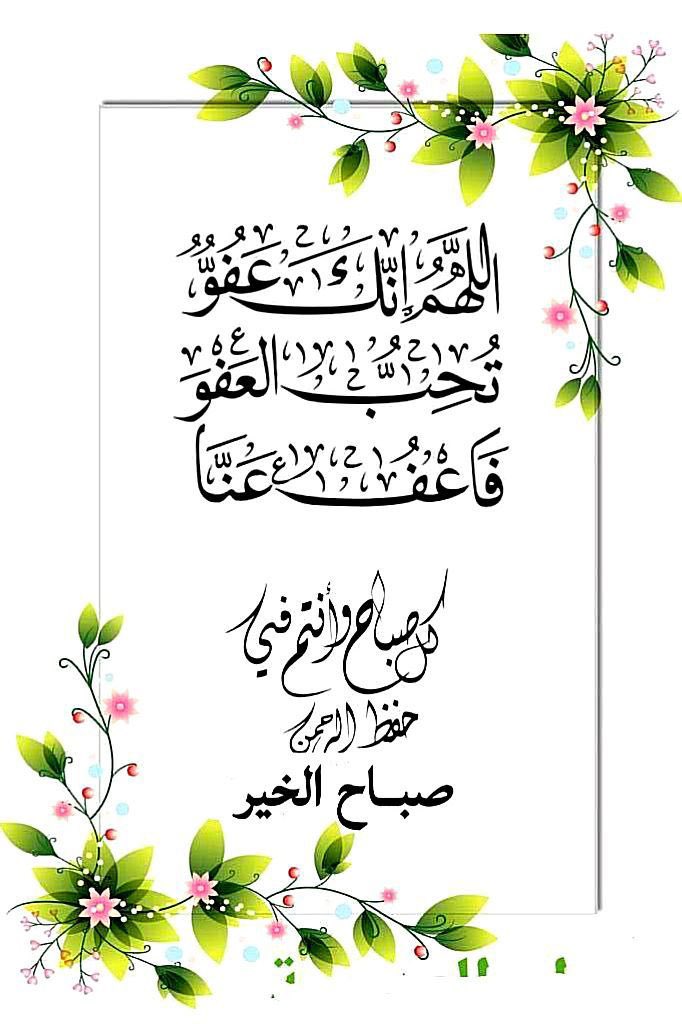 اللَّهُمَّ إِنَّكَ عَفُوٌّ
تُحِبُّ العَفْوَ
فَاعْفُ عَنَّا
كل صباح وأنتم في
حفظ الرحمن
صباح الخير